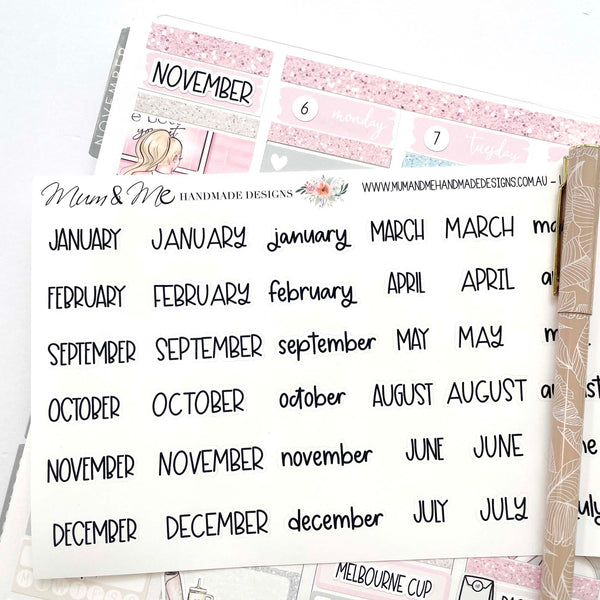 NOVEMBER
NOVEMBER
6 monday
7 tuesday
Mum & Me HANDMADE DESIGNS WWW.MUMANDMEHANDMADEDESIGNS.COM.AU -
JANUARY JANUARY january MARCH MARCH
FEBRUARY FEBRUARY february APRIL APRIL
SEPTEMBER SEPTEMBER september MAY MAY
OCTOBER OCTOBER october AUGUST AUGUST
NOVEMBER NOVEMBER november JUNE JUNE
DECEMBER DECEMBER december JULY JULY july
MELBOURNE CUP